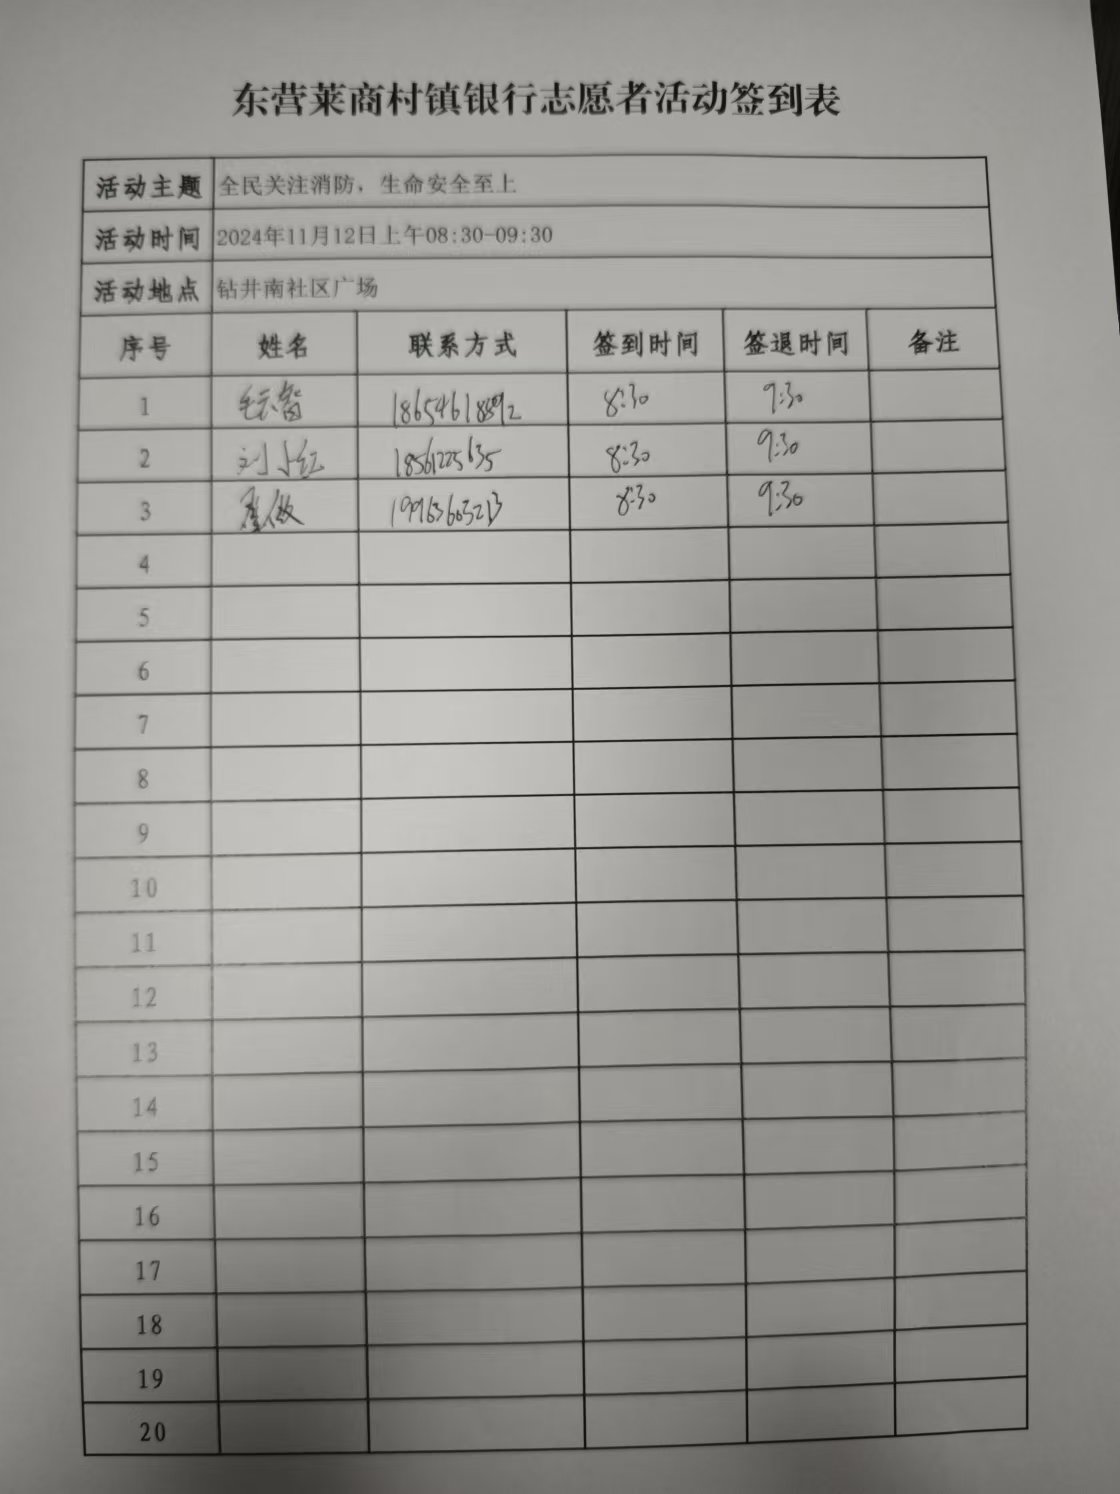 东营莱商村镇银行志愿者活动签到表
活动主题 全民关注消防，生命安全至上
活动时间 2024年11月12日上午08:30-09:30
活动地点 钻井南社区广场
序号 姓名 联系方式 签到时间 签退时间 备注
1 8:30 9:30
2 刘小红 18561225635 8:30 9:30
3 19963603213 8:30 9:30
4
5
6
7
8
9
10
11
12
13
14
15
16
17
18
19
20